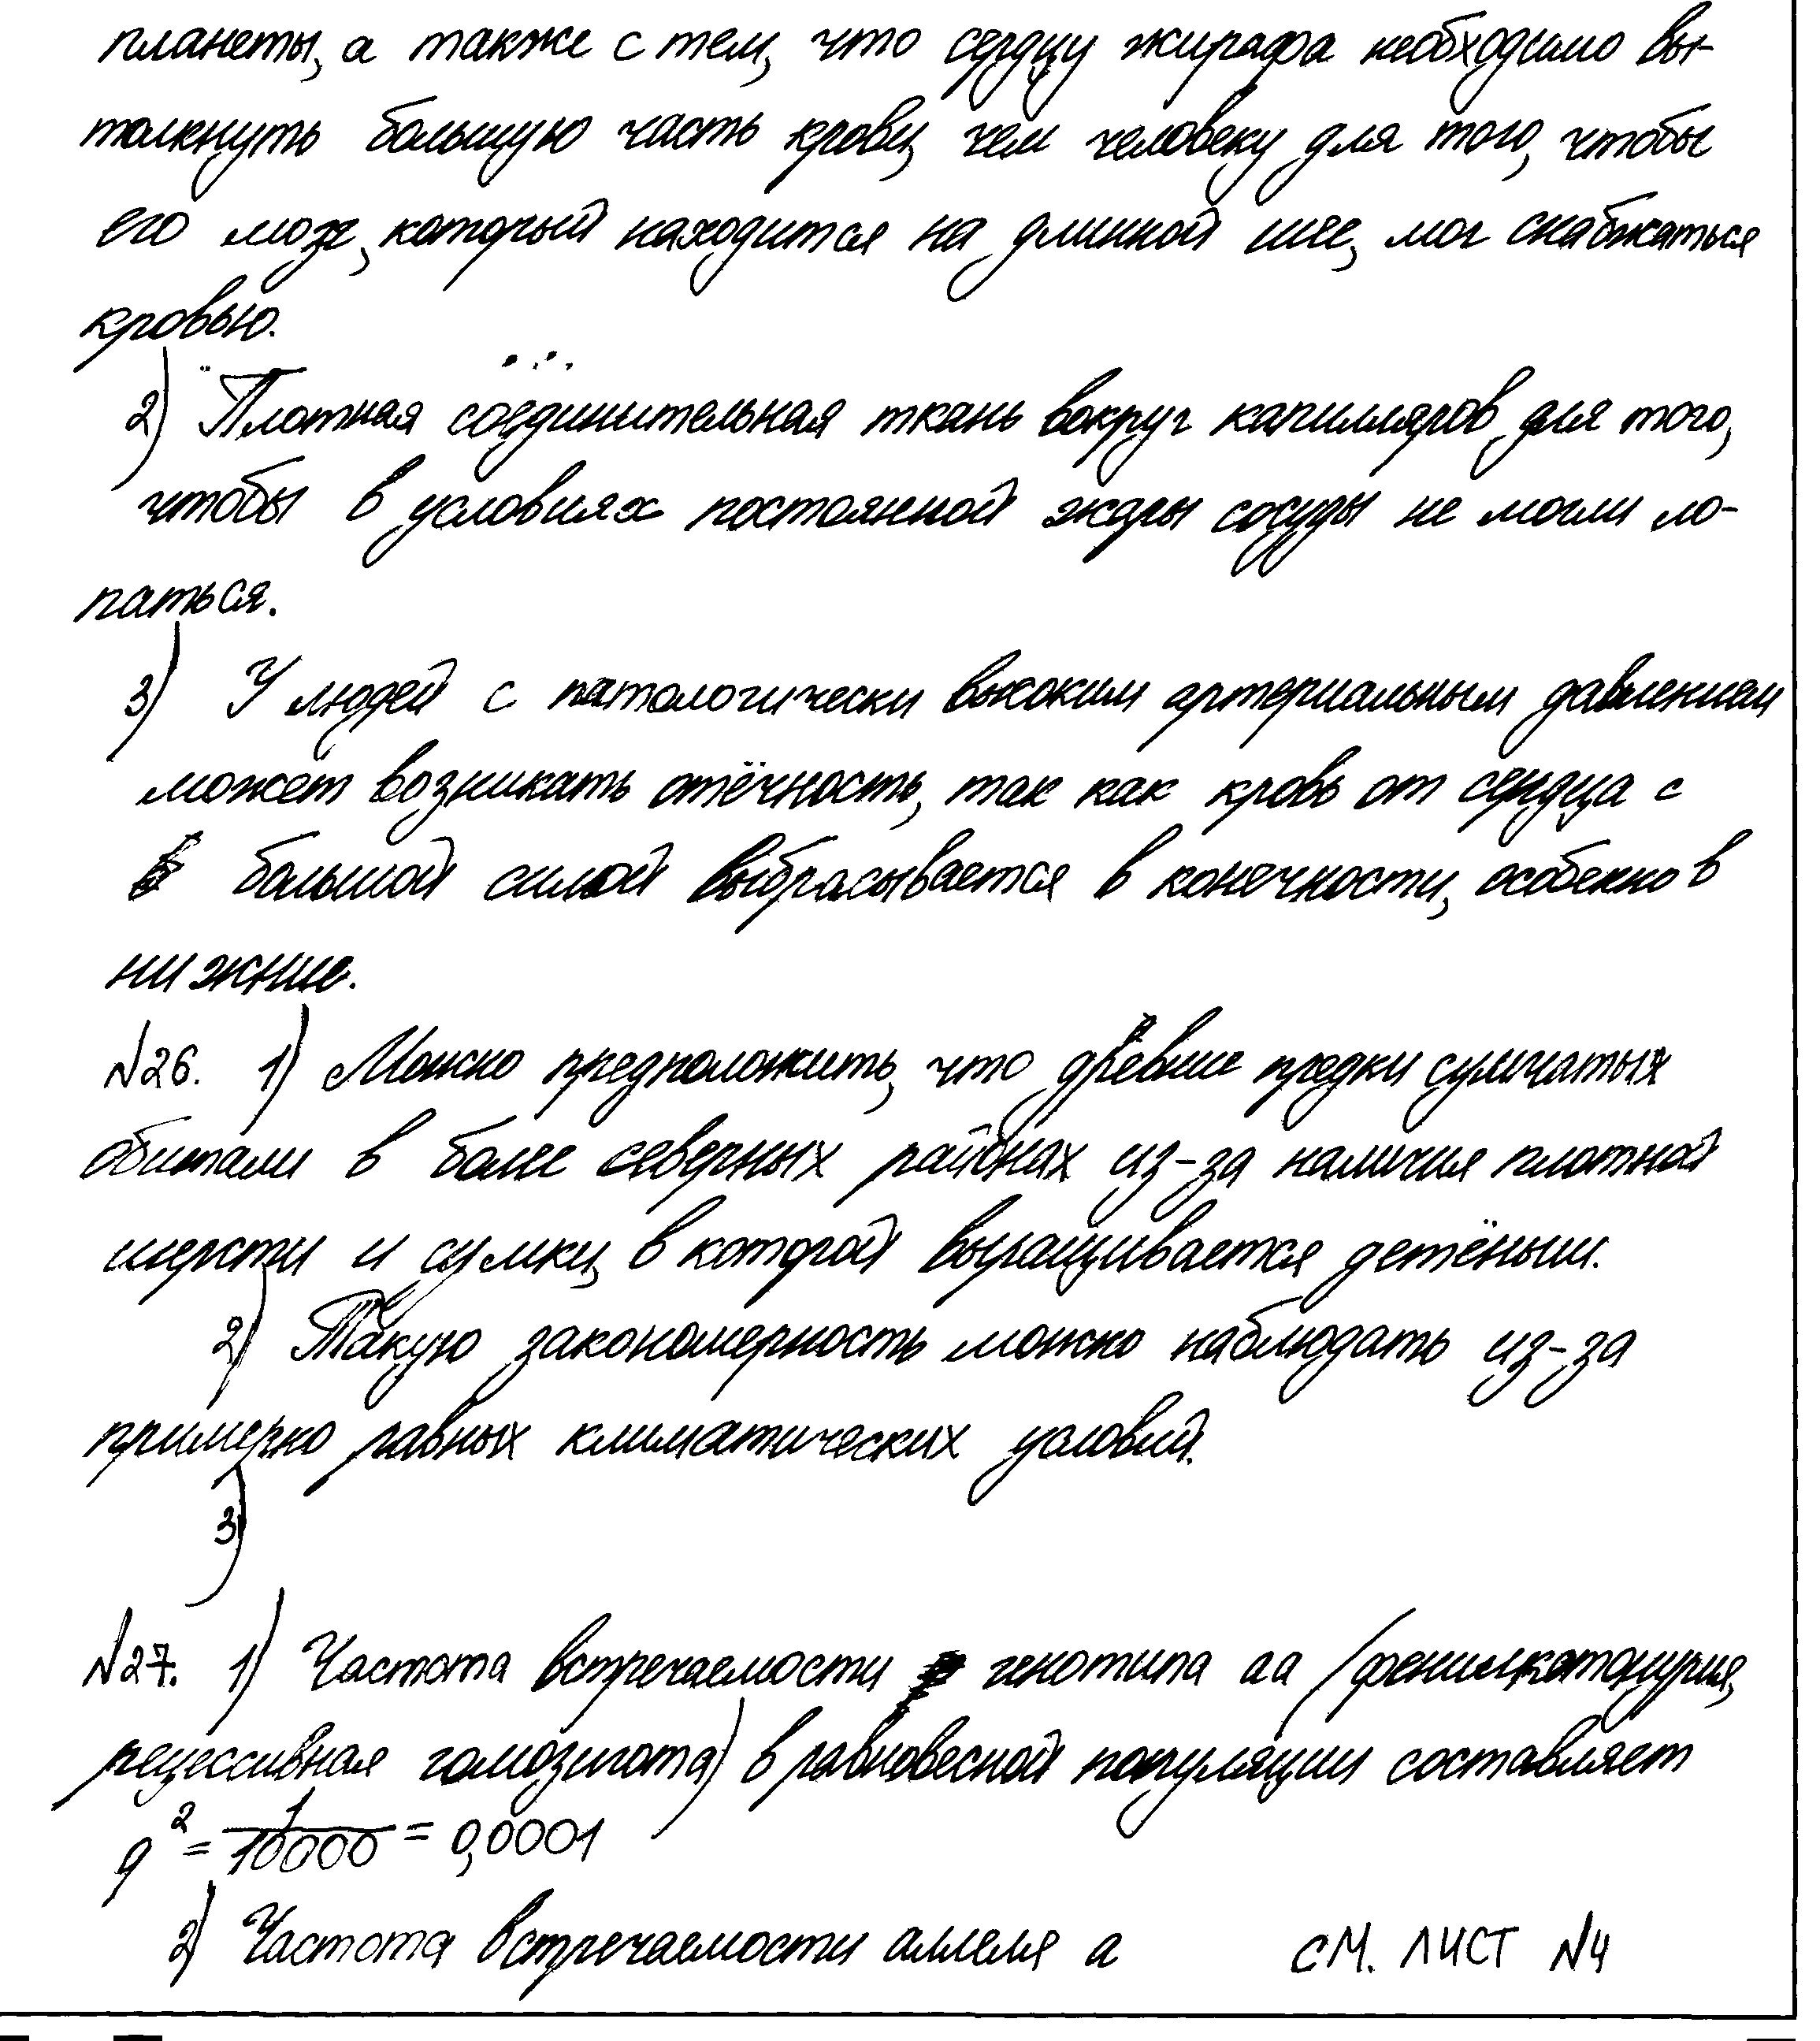 планеты, а также с тем, что сердцу жирафа необходимо вы-
толкнуть большую часть крови, чем человеку для того, чтобы
его мозг, который находится на длинной шее, мог снабжаться
кровью.
2) Плотная соединительная ткань вокруг капилляров для того,
чтобы в условиях постоянной жары сосуды не могли ло-
паться.
3) У людей с патологически высоким артериальным давлением
может возникать отёчность, так как кровь от сердца с
большой силой выбрасывается в конечности, особенно в
нижние.
№26. 1) Можно предположить, что древние предки сумчатых
обитали в более северных районах из-за наличия плотной
шерсти и сумки, в которой выращивается детёныш.
2) Такую закономерность можно наблюдать из-за
примерно равных климатических условий.
3)
№27. 1) Частота встречаемости генотипа аа (фенилкетонурия,
рецессивная гомозигота) в равновесной популяции составляет
q² = 1/10000 = 0,0001
2) Частота встречаемости аллеля а см. лист №4